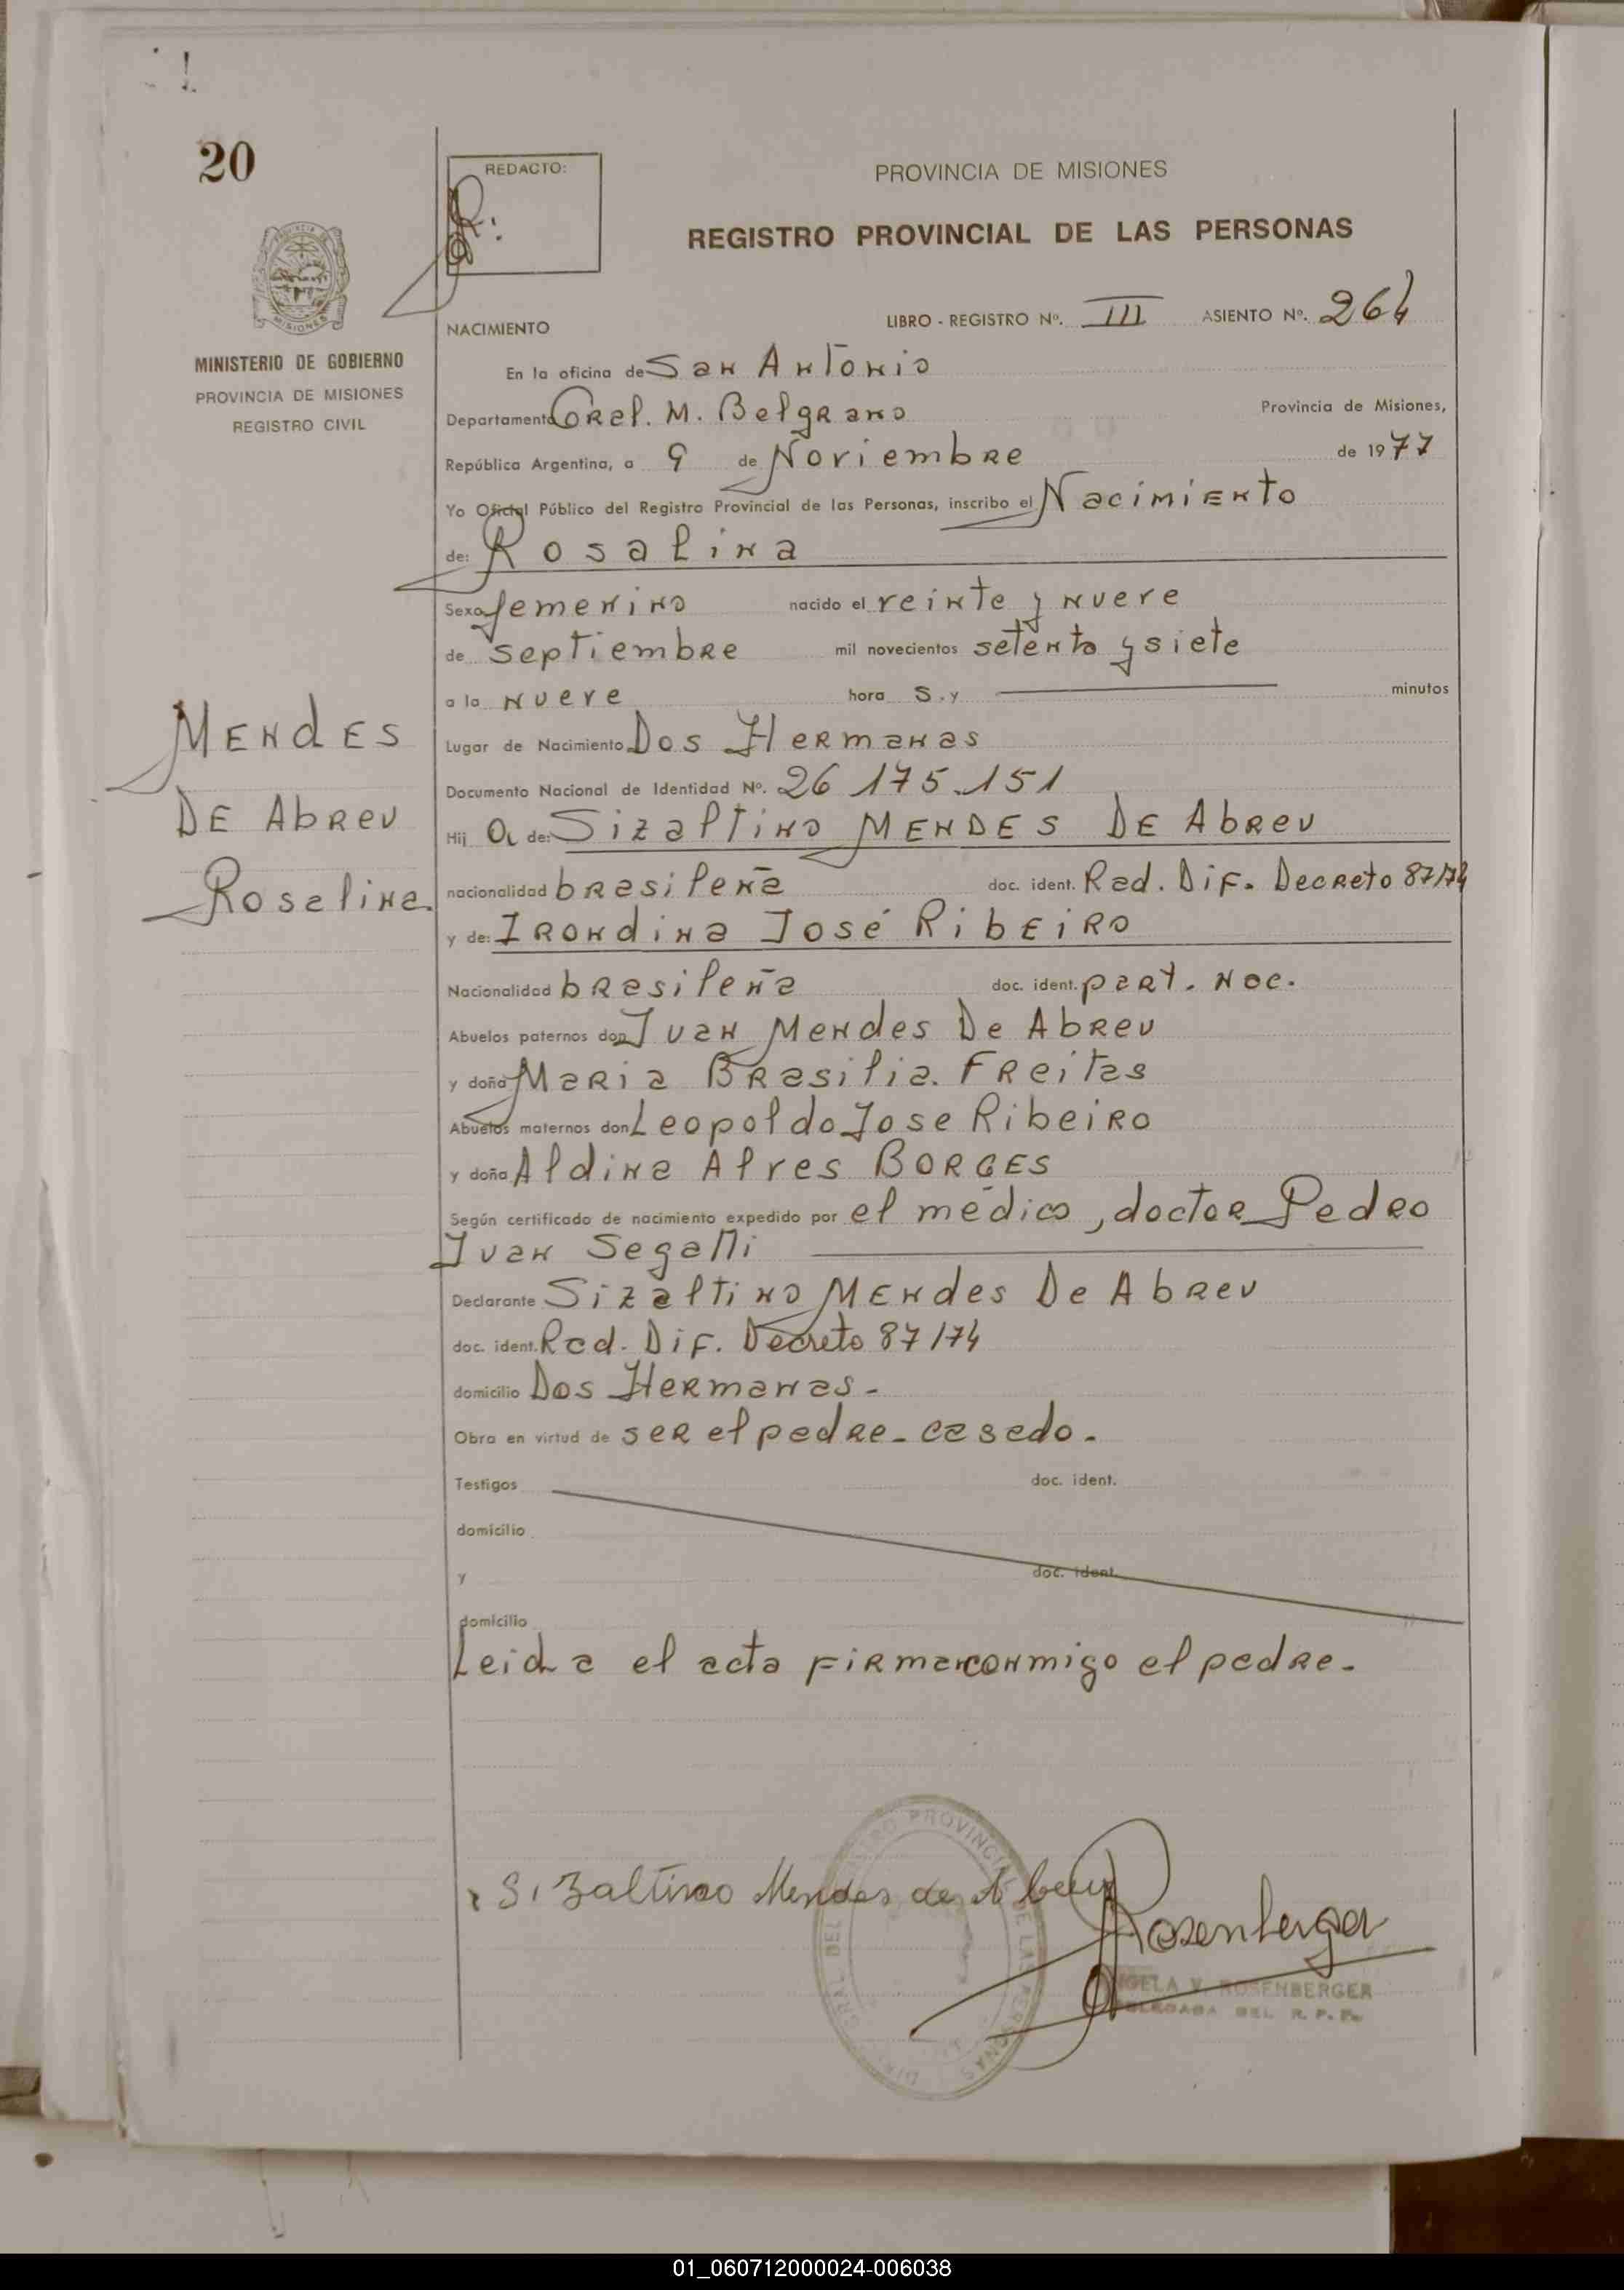 20
REDACTO:
PROVINCIA DE MISIONES
REGISTRO PROVINCIAL DE LAS PERSONAS
MISIONES
MINISTERIO DE GOBIERNO
PROVINCIA DE MISIONES
REGISTRO CIVIL
NACIMIENTO LIBRO - REGISTRO Nº. III ASIENTO Nº. 264
En la oficina de San Antonio
Departamento Gral. M. Belgrano Provincia de Misiones,
República Argentina, a 9 de Noviembre de 1977
Yo Oficial Público del Registro Provincial de las Personas, inscribo el Nacimiento
de: Rosalina
Sexo femenino nacido el veinte y nueve
de septiembre mil novecientos setenta y siete
a la nueve hora s. y minutos
Mendes
De Abreu
Rosalina.
Lugar de Nacimiento Dos Hermanas
Documento Nacional de Identidad Nº. 26 175.151
Hij a de: Sizaltino MENDES DE Abreu
nacionalidad brasileña doc. ident. Rad. Dif. Decreto 87/74
y de: Irondina José Ribeiro
Nacionalidad brasileña doc. ident. part. Noc.
Abuelos paternos don Juan Mendes De Abreu
y doña Maria Brasilia. Freitas
Abuelos maternos don Leopoldo Jose Ribeiro
y doña Aldina Alves BORGES
Según certificado de nacimiento expedido por el médico, doctor Pedro
Juan Segalli
Declarante Sizaltino Mendes De Abreu
doc. ident. Rad. Dif. Decreto 87/74
domicilio Dos Hermanas.
Obra en virtud de ser el padre - casado.
Testigos doc. ident.
domicilio
y doc. ident.
domicilio
Leida el acta firma conmigo el padre.
Sizaltino Mendes de Abreu
Rosenberger
ANGELA V. ROSENBERGER
DELEGADA DEL R. P. P.
01_060712000024-006038